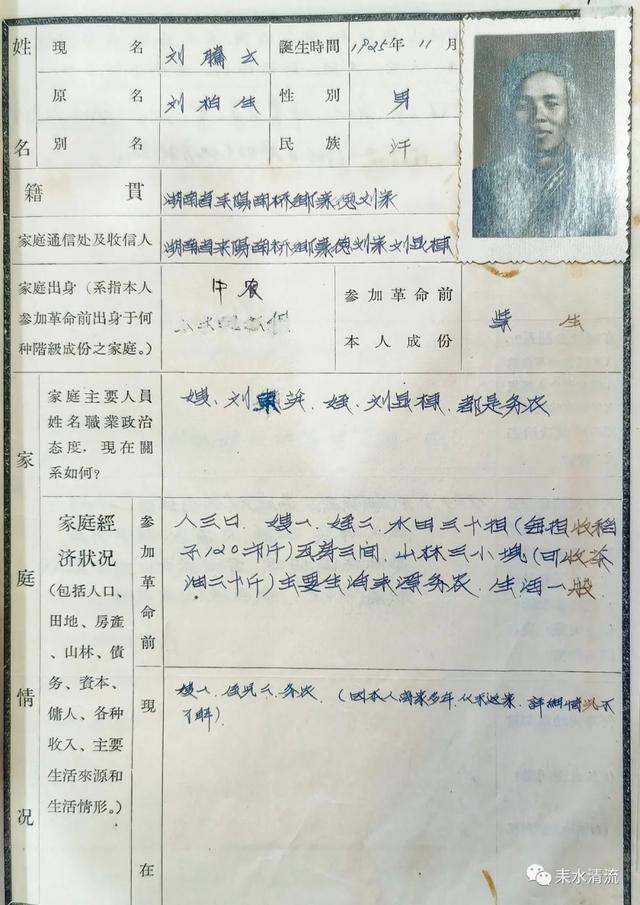 姓名
現名 刘騰云 誕生時間 1925年11月
原名 刘柏生 性別 男
別名 民族 汗
籍貫 湖南省耒陽南桥鄉豪德刘家
家庭通信处及收信人 湖南省耒陽南桥鄉豪德刘家刘县棟
家庭出身(系指本人 中农 参加革命前
参加革命前出身于何 本人成份 学生
种階級成份之家庭。)
家庭情况
家庭主要人員 嫂、刘英、姪、刘县棟、都是务农
姓名職業政治
态度,現在關
系如何?
家庭經
济狀况
(包括人口、
田地、房產
、山林、債
务、資本、
傭人、各种
收入、主要
生活來源和
生活情形。)
参加革命前
人三口、嫂一、姪二、水田三十担(每担收稻
子120市斤)瓦房三间、山林三小塊(可收茶
油二十斤)主要生活来源务农、生活一般
現在
嫂一、侄兒二、务农、(因本人离家多年、从未返家、詳細情况不
了解)
耒水清流